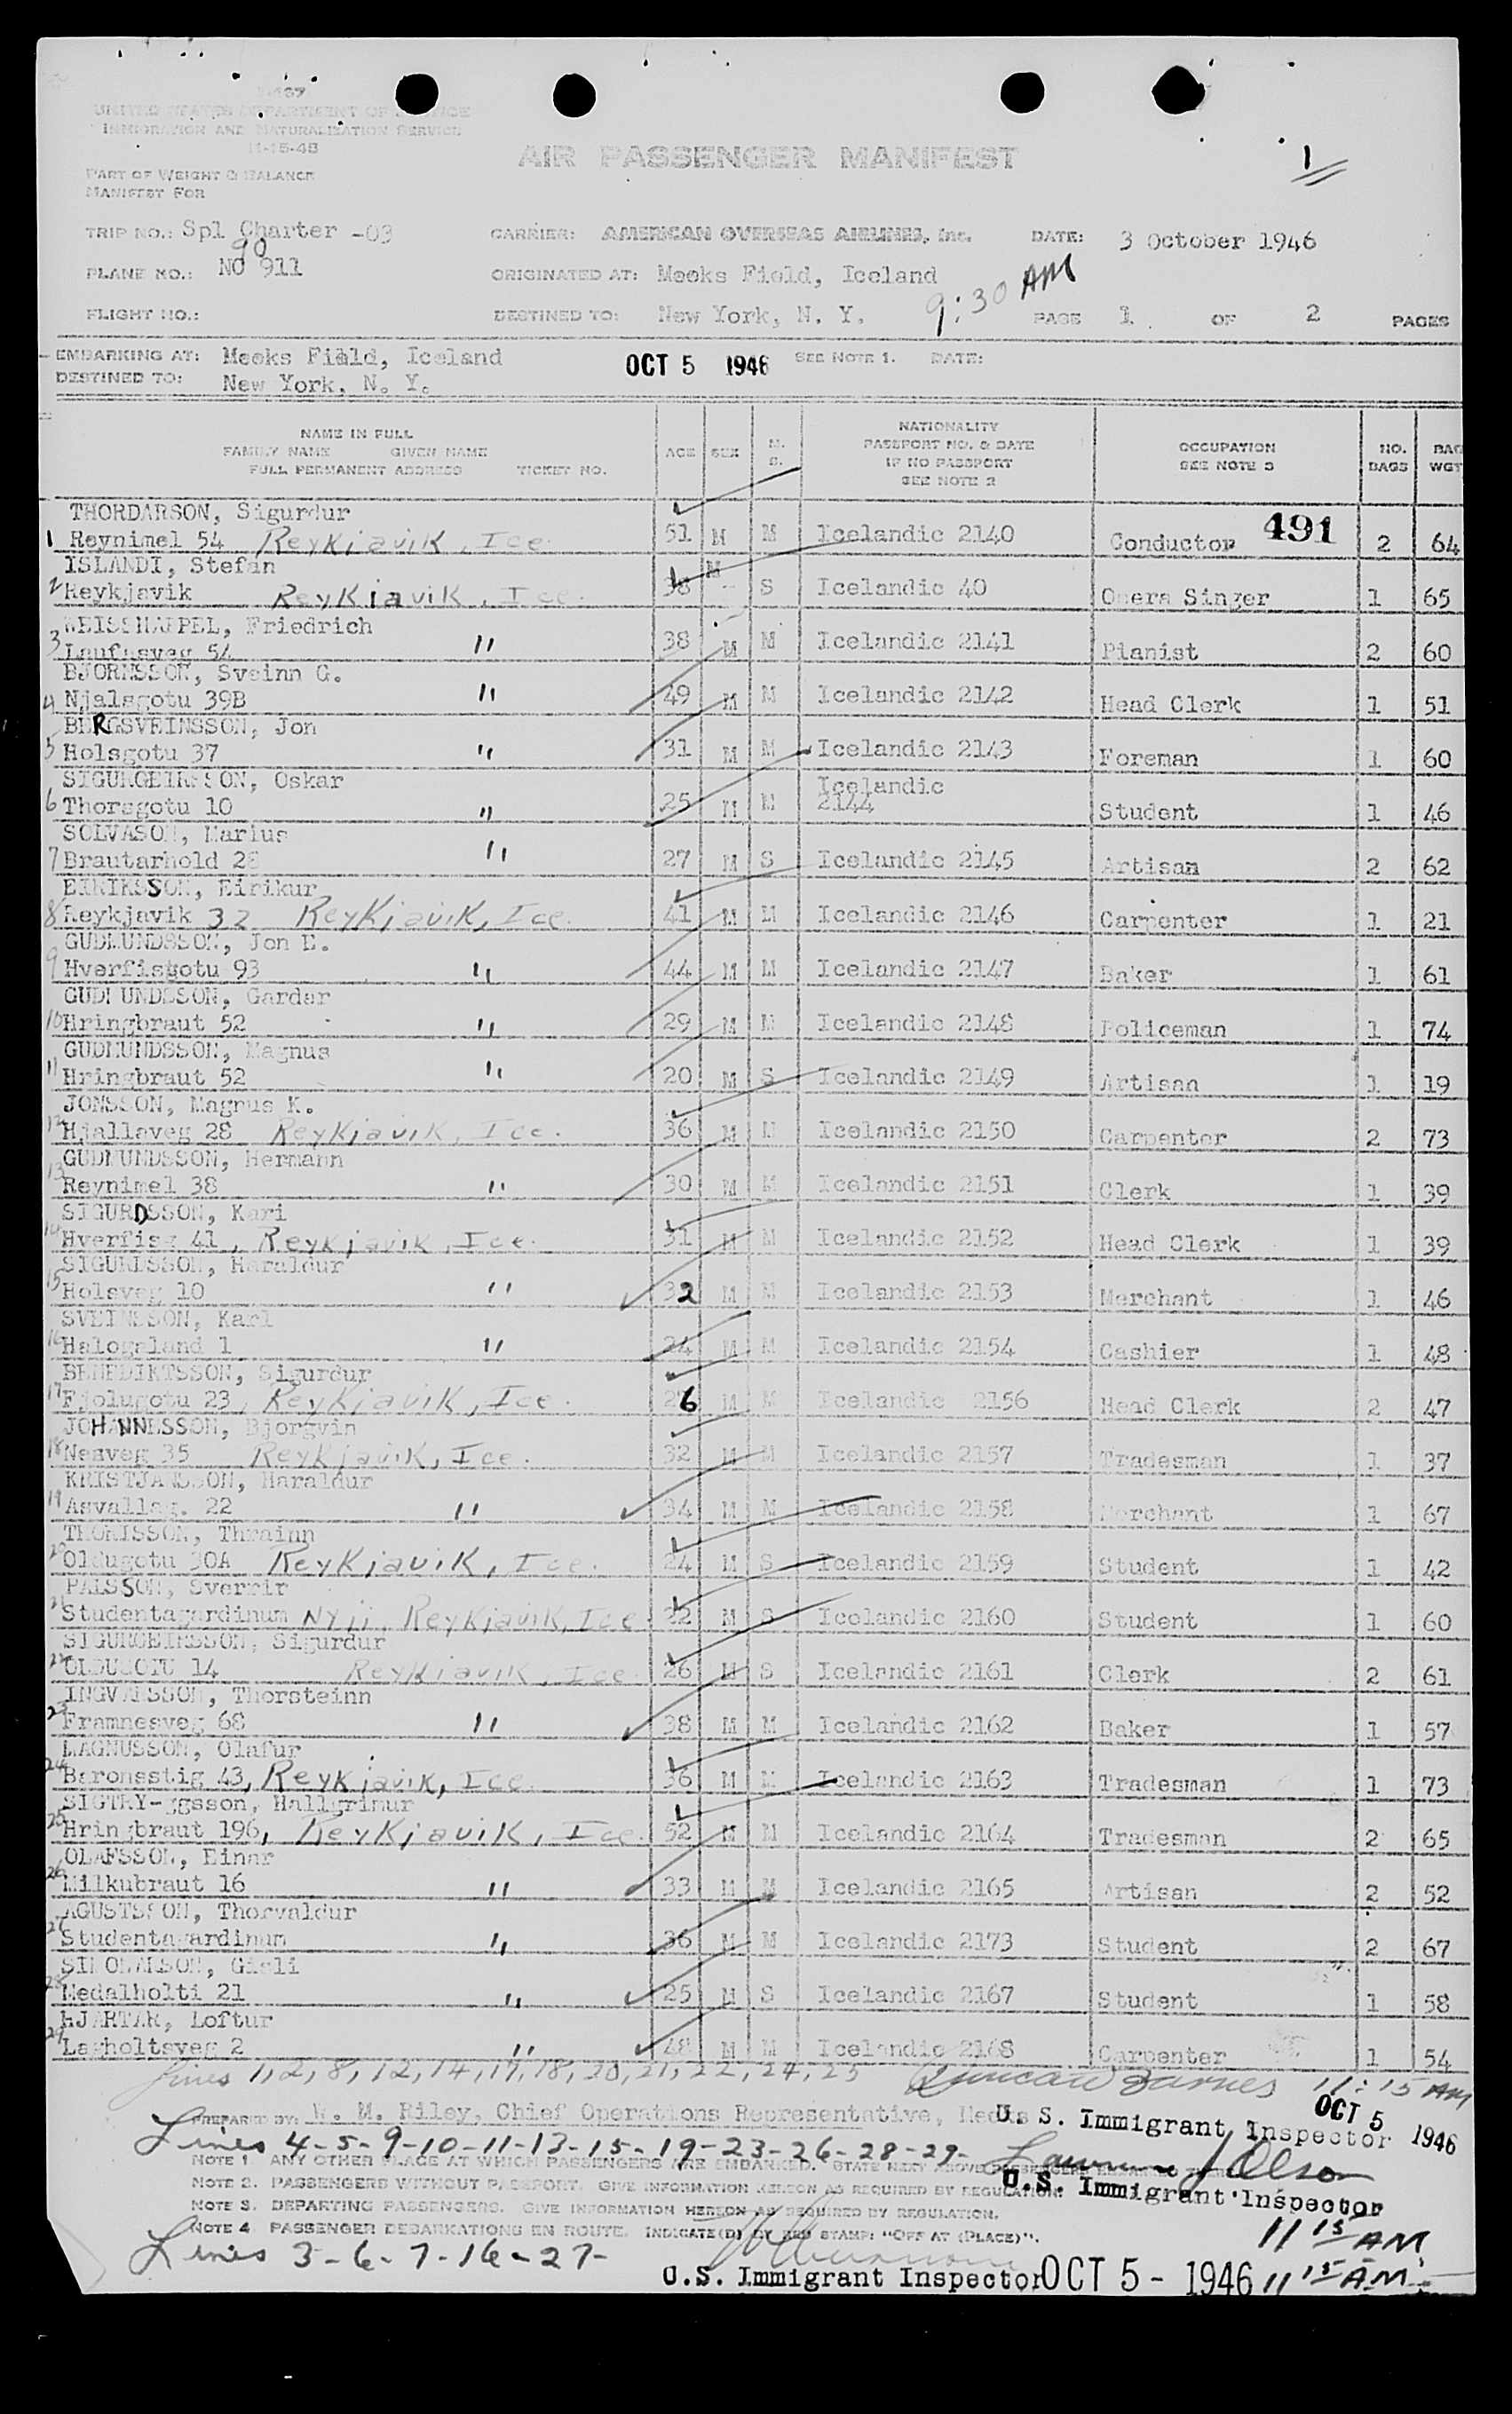 UNITED STATES DEPARTMENT OF JUSTICE
IMMIGRATION AND NATURALIZATION SERVICE
11-15-43
AIR PASSENGER MANIFEST
1
PART OF WEIGHT & BALANCE
MANIFEST FOR
TRIP NO.: Spl Charter -03 CARRIER: AMERICAN OVERSEAS AIRLINES, Inc. DATE: 3 October 1946
90
PLANE NO.: NC 911 ORIGINATED AT: Meeks Field, Iceland
9:30 AM
FLIGHT NO.: DESTINED TO: New York, N. Y. PAGE 1 OF 2 PAGES
EMBARKING AT: Meeks Field, Iceland OCT 5 1946 SEE NOTE 1. DATE:
DESTINED TO: New York, N. Y.
NAME IN FULL
FAMILY NAME GIVEN NAME
FULL PERMANENT ADDRESS TICKET NO.
AGE SEX M. S.
NATIONALITY
PASSPORT NO. & DATE
IF NO PASSPORT
SEE NOTE 2
OCCUPATION
SEE NOTE 3
NO. BAGS BAG WGT
THORDARSON, Sigurdur
1 Reynimel 54 Reykjavik, Ice. 51 M M Icelandic 2140 Conductor 491 2 64
ISLANDI, Stefan
2 Reykjavik Reykjavik, Ice. 38 M S Icelandic 40 Opera Singer 1 65
WEISSHAPPEL, Friedrich
3 Laufasveg 54 " 38 M M Icelandic 2141 Pianist 2 60
BJORNSSON, Sveinn G.
4 Njalsgotu 39B " 49 M M Icelandic 2142 Head Clerk 1 51
BERGSVEINSSON, Jon
5 Holsgotu 37 " 31 M M Icelandic 2143 Foreman 1 60
SIGURGEIRSSON, Oskar
6 Thorsgotu 10 " 25 M M Icelandic 2144 Student 1 46
SOLVASON, Marius
7 Brautarhold 28 " 27 M S Icelandic 2145 Artisan 2 62
EIRIKSSON, Eirikur
8 Reykjavik 32 Reykjavik, Ice. 41 M M Icelandic 2146 Carpenter 1 21
GUDMUNDSSON, Jon E.
9 Hverfisgotu 93 " 44 M M Icelandic 2147 Baker 1 61
GUDMUNDSSON, Gardar
10 Hringbraut 52 " 29 M M Icelandic 2148 Policeman 1 74
GUDMUNDSSON, Magnus
11 Hringbraut 52 " 20 M S Icelandic 2149 Artisan 1 19
JONSSON, Magnus K.
12 Hjallaveg 28 Reykjavik, Ice. 36 M M Icelandic 2150 Carpenter 2 73
GUDMUNDSSON, Hermann
13 Reynimel 38 " 30 M M Icelandic 2151 Clerk 1 39
SIGURDSSON, Kari
14 Hverfisg 41, Reykjavik, Ice. 31 M M Icelandic 2152 Head Clerk 1 39
SIGURDSSON, Haraldur
15 Holsveg 10 " 32 M M Icelandic 2153 Merchant 1 46
SVEINSSON, Karl
16 Halogaland 1 " 24 M M Icelandic 2154 Cashier 1 48
BENEDIKTSSON, Sigurdur
17 Fjolugotu 23, Reykjavik, Ice. 26 M M Icelandic 2156 Head Clerk 2 47
JOHANNESSON, Bjorgvin
18 Nesveg 35 Reykjavik, Ice. 32 M M Icelandic 2157 Tradesman 1 37
KRISTJANSSON, Haraldur
19 Asvallag. 22 " 34 M M Icelandic 2158 Merchant 1 67
THORISSON, Thrainn
20 Oldugotu 30A Reykjavik, Ice. 24 M S Icelandic 2159 Student 1 42
PALSSON, Sverrir
21 Studentagardinum Nyji Reykjavik, Ice. 22 M S Icelandic 2160 Student 1 60
SIGURGEIRSSON, Sigurdur
22 OLDUGOTU 14 Reykjavik, Ice. 26 M S Icelandic 2161 Clerk 2 61
INGVARSSON, Thorsteinn
23 Framnesveg 68 " 38 M M Icelandic 2162 Baker 1 57
MAGNUSSON, Olafur
24 Baronsstig 43, Reykjavik, Ice. 36 M M Icelandic 2163 Tradesman 1 73
SIGTRY-ggsson, Hallgrimur
25 Hringbraut 196, Reykjavik, Ice. 52 M M Icelandic 2164 Tradesman 2 65
OLAFSSON, Einar
26 Milkubraut 16 " 33 M M Icelandic 2165 Artisan 2 52
AGUSTSSON, Thorvaldur
27 Studentagardinum " 36 M M Icelandic 2173 Student 2 67
SIMONARSON, Gisli
28 Medalholti 21 " 25 M S Icelandic 2167 Student 1 58
HJARTAR, Loftur
29 Lagholtsveg 2 " 48 M M Icelandic 2168 Carpenter 1 54
Lines 1, 2, 8, 12, 14, 17, 18, 20, 21, 22, 24, 25 Duncan Barnes 11:15 AM
PREPARED BY: W. M. Riley, Chief Operations Representative, Meeks U. S. Immigrant Inspector OCT 5 1946
Lines 4-5-9-10-11-13-15-19-23-26-28-29- Lawrence J Olson
NOTE 1. ANY OTHER PLACE AT WHICH PASSENGERS ARE EMBARKED.
U.S. Immigrant Inspector
NOTE 2. PASSENGERS WITHOUT PASSPORT. GIVE INFORMATION HEREON AS REQUIRED BY REGULATION.
NOTE 3. DEPARTING PASSENGERS. GIVE INFORMATION HEREON AS REQUIRED BY REGULATION.
11 15 AM
NOTE 4 PASSENGER DEBARKATIONS EN ROUTE. INDICATE(D) BY RED STAMP: "OFF AT (PLACE)".
Lines 3-6-7-16-27-
U.S. Immigrant Inspector OCT 5 - 1946 11 15 AM